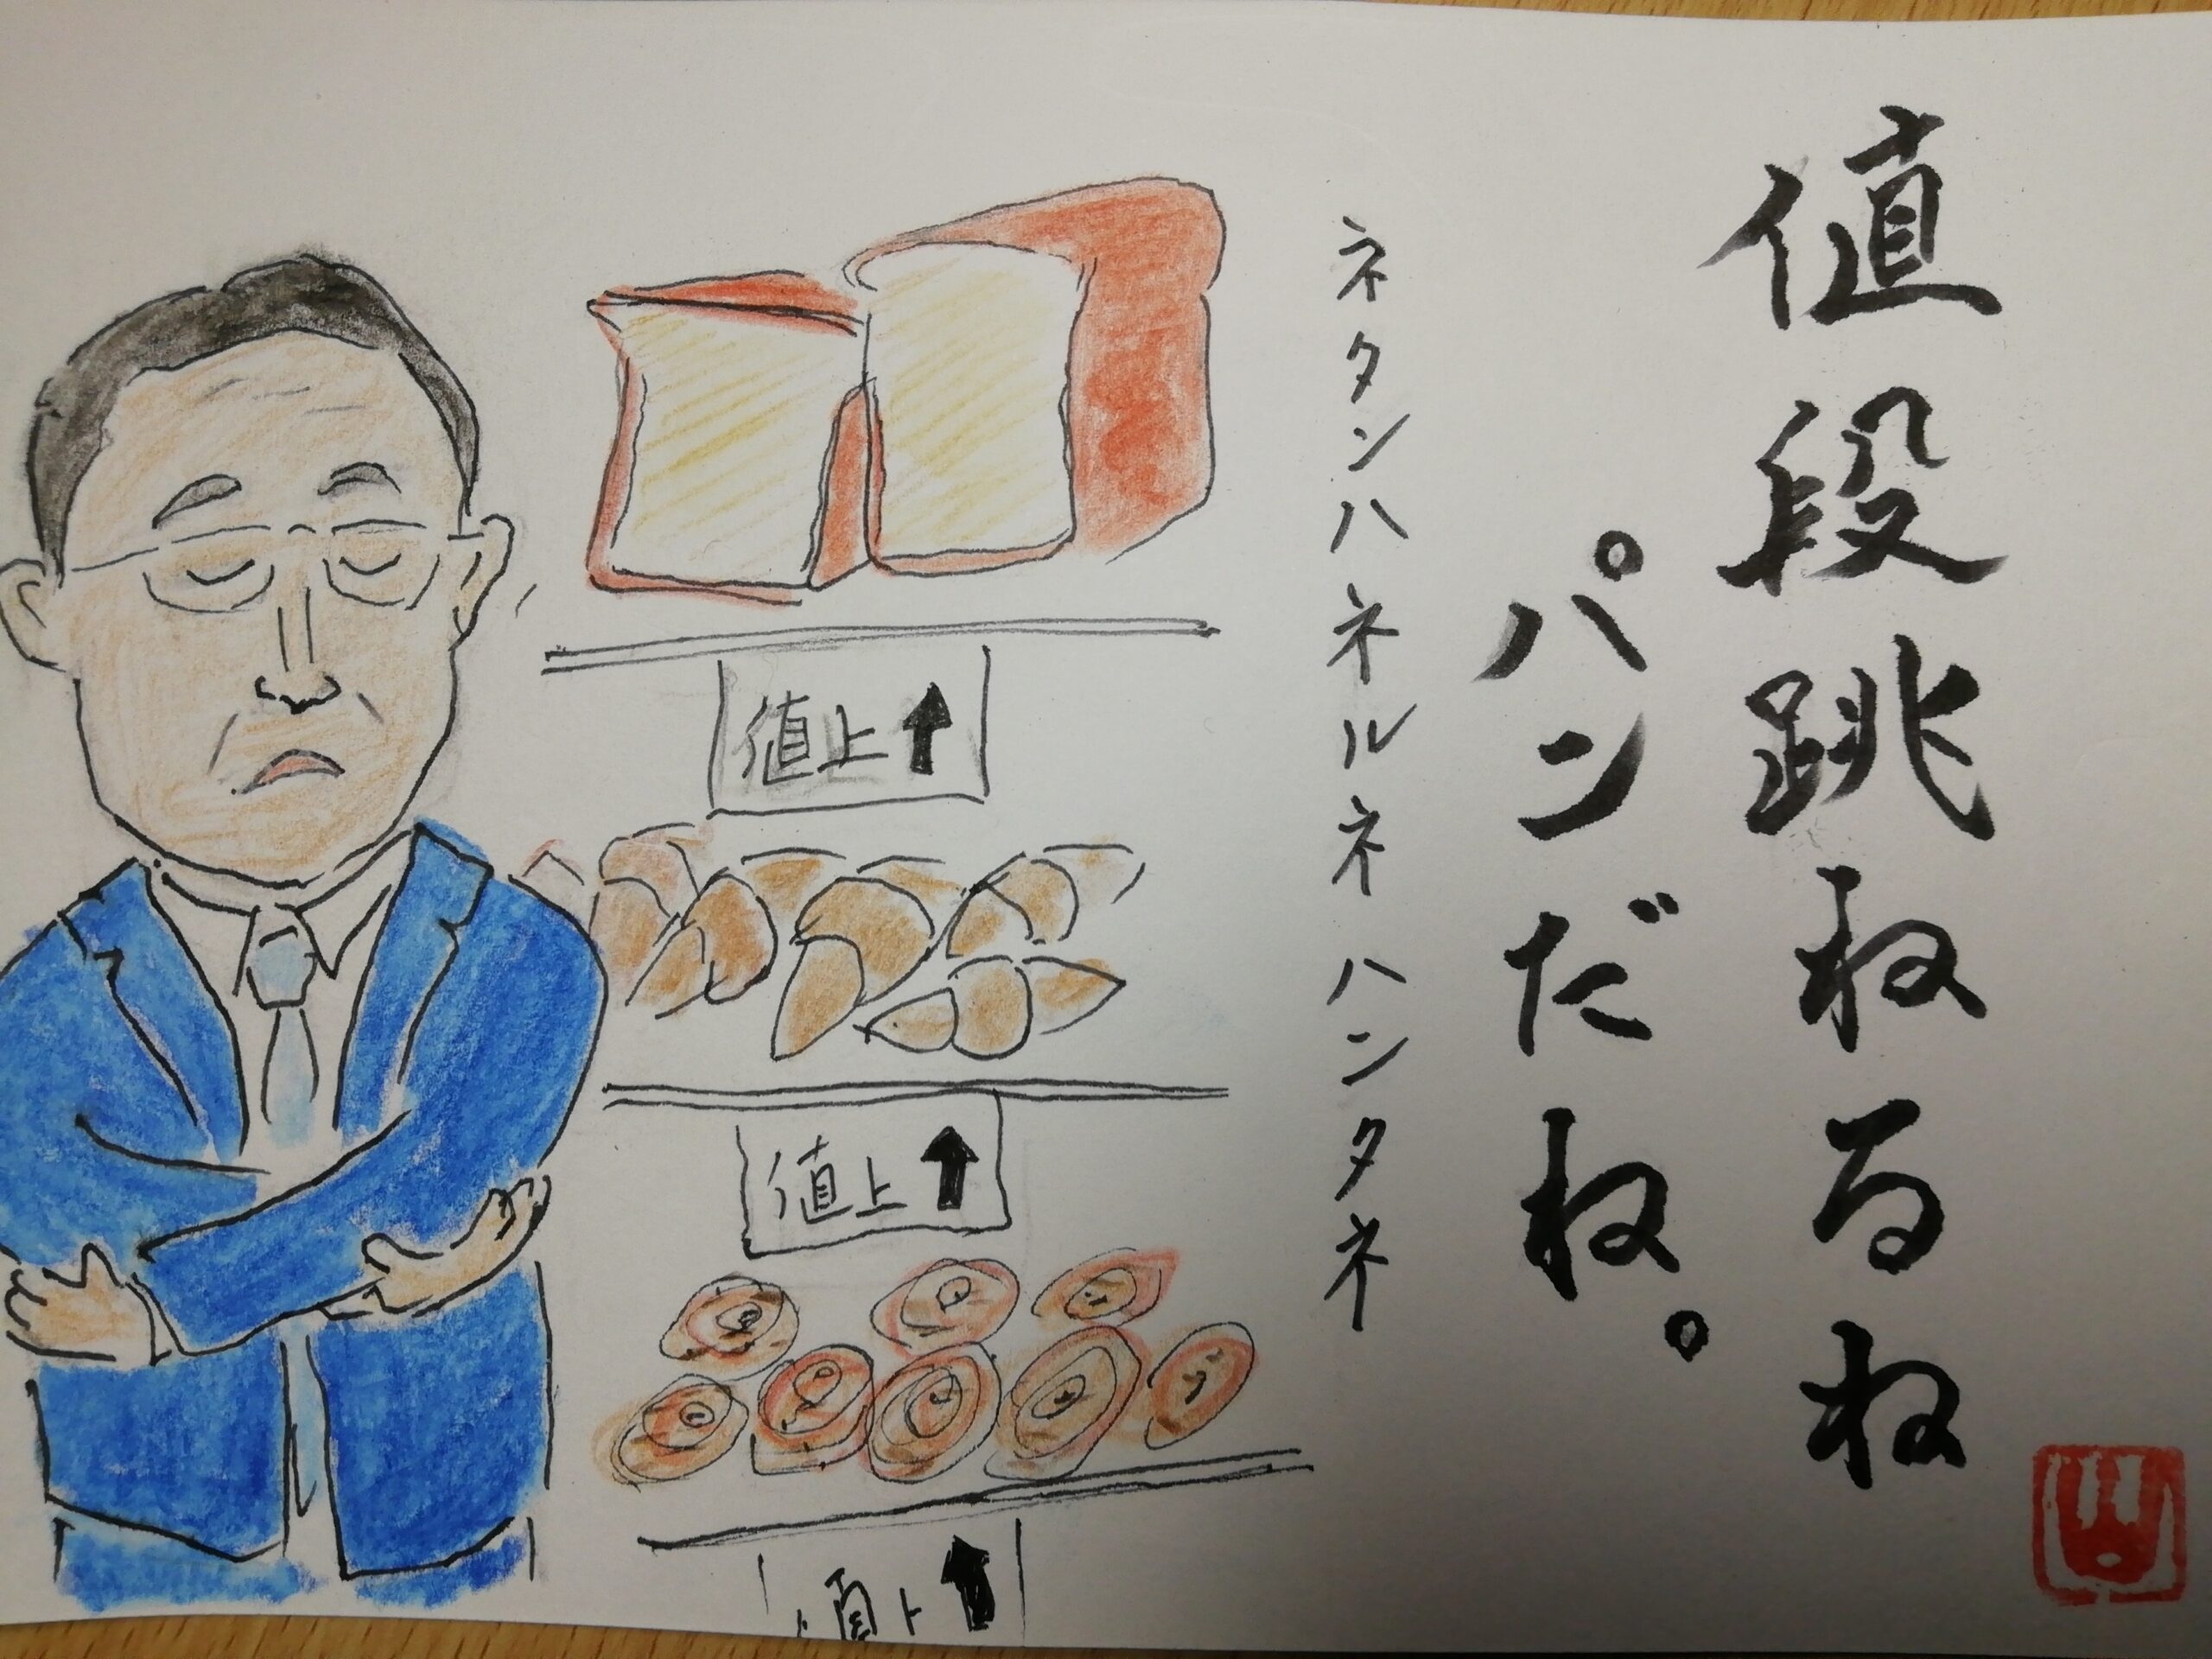 値段跳ねるね
パンだね。
ネタンハネルネハンタネ
値上↑
値上↑
値上↑